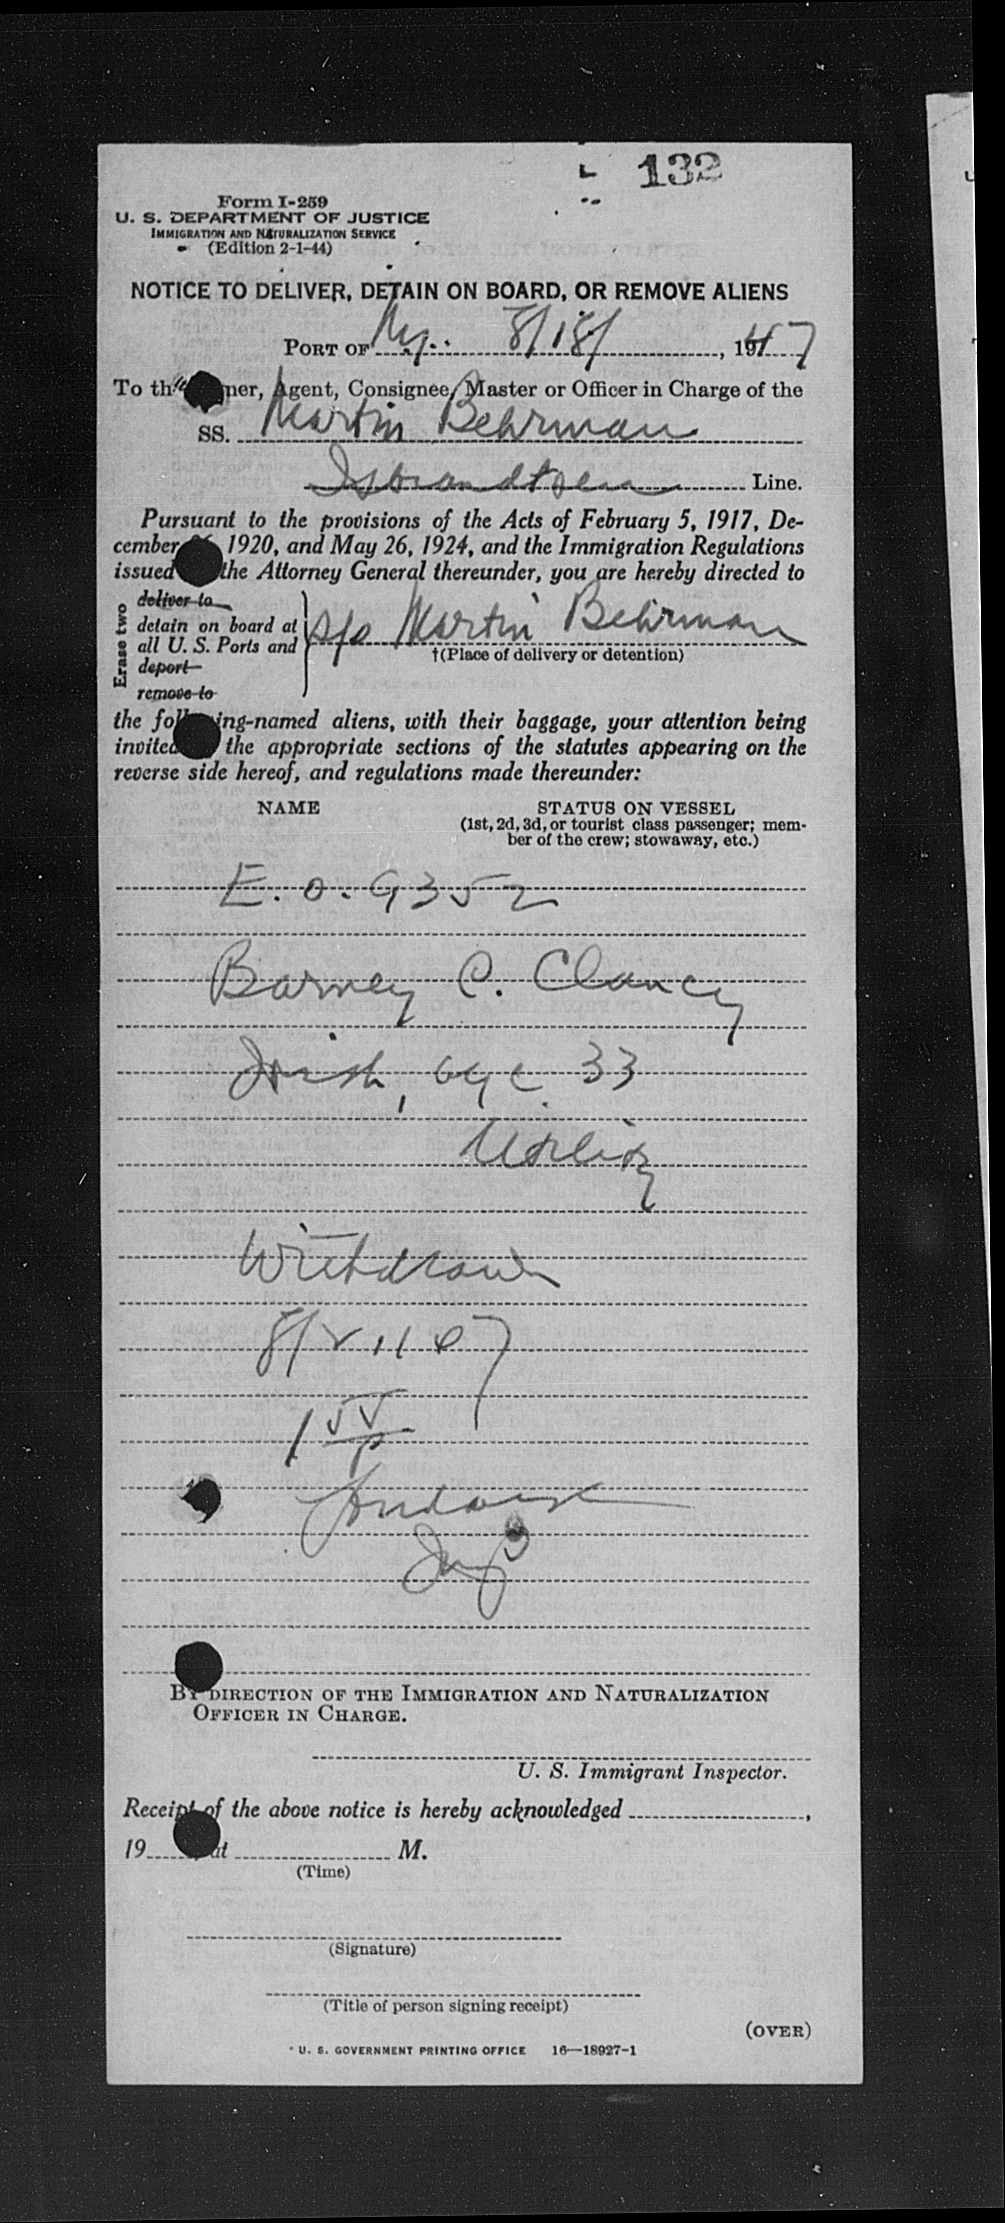 132
Form I-259
U. S. DEPARTMENT OF JUSTICE
IMMIGRATION AND NATURALIZATION SERVICE
(Edition 2-1-44)
NOTICE TO DELIVER, DETAIN ON BOARD, OR REMOVE ALIENS
PORT OF N.Y. 8/18/, 1947
To th ner, Agent, Consignee, Master or Officer in Charge of the
SS. Martin Behrman
Isbrandtsen Line.
Pursuant to the provisions of the Acts of February 5, 1917, De-
cember 1920, and May 26, 1924, and the Immigration Regulations
issued the Attorney General thereunder, you are hereby directed to
Erase two
deliver to
detain on board at
all U. S. Ports and
deport
remove to
s/s Martin Behrman
†(Place of delivery or detention)
the fol ing-named aliens, with their baggage, your attention being
invited the appropriate sections of the statutes appearing on the
reverse side hereof, and regulations made thereunder:
NAME STATUS ON VESSEL
(1st, 2d, 3d, or tourist class passenger; mem-
ber of the crew; stowaway, etc.)
E. O. 9352
Barney C. Clancy
Irish, age 33
Utility
Withdrawn
BY DIRECTION OF THE IMMIGRATION AND NATURALIZATION
OFFICER IN CHARGE.
U. S. Immigrant Inspector.
Receipt of the above notice is hereby acknowledged ,
19 at M.
(Time)
(Signature)
(Title of person signing receipt)
(OVER)
U. S. GOVERNMENT PRINTING OFFICE 16—18927-1